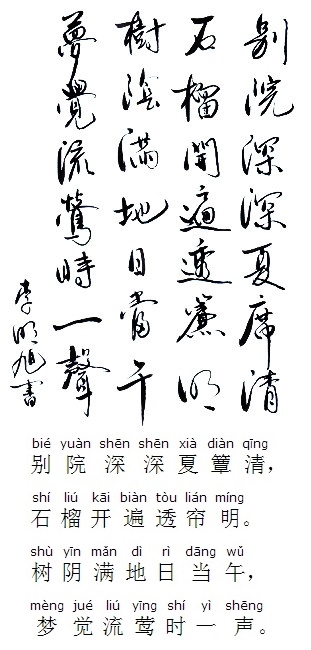 别院深深夏席清
石榴開遍透簾明
樹陰滿地日當午
夢覺流鶯時一聲
李明旭書
bié yuàn shēn shēn xià diàn qīng
别院深深夏簟清，
shí liú kāi biàn tòu lián míng
石榴开遍透帘明。
shù yīn mǎn dì rì dāng wǔ
树阴满地日当午，
mèng jué liú yīng shí yì shēng
梦觉流莺时一声。